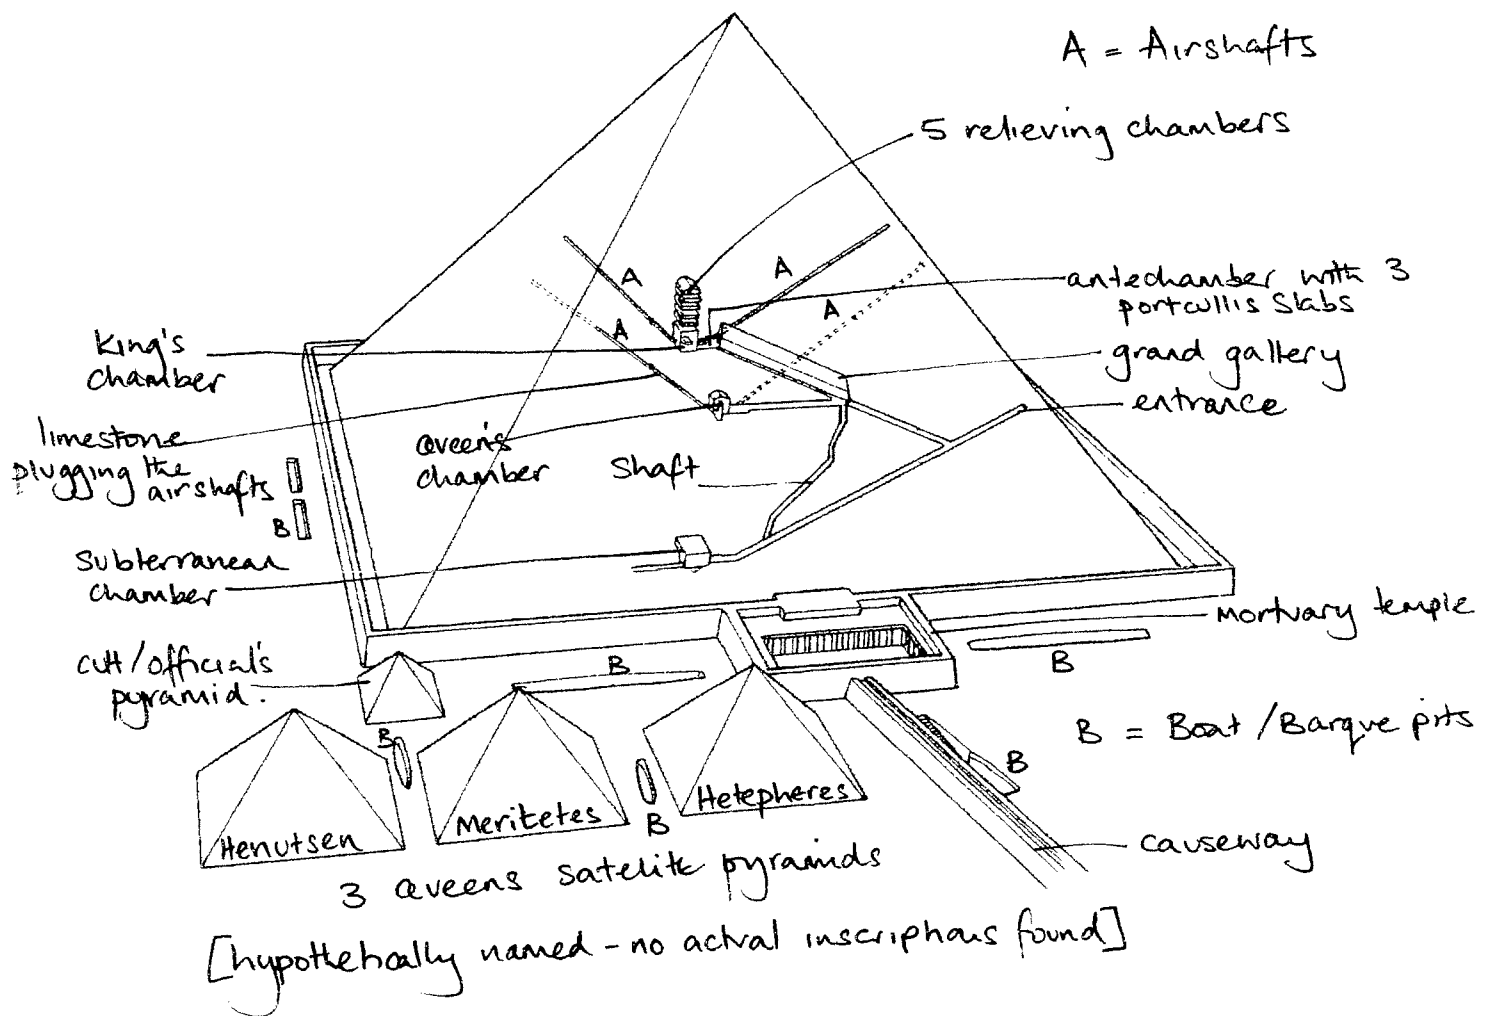 A = Airshafts
5 relieving chambers
A
A
antechamber with 3
portcullis Slabs
A
A
King's
chamber
grand gallery
entrance
limestone
plugging the
airshafts
Queen's
chamber
Shaft
B
Subterranean
chamber
mortuary temple
B
cult/official's
pyramid.
B
B = Boat/Barque pits
B
B
Henutsen
Meritetes
Hetepheres
B
causeway
3 Queens satelite pyramids
[hypothetically named - no actual inscriptions found]